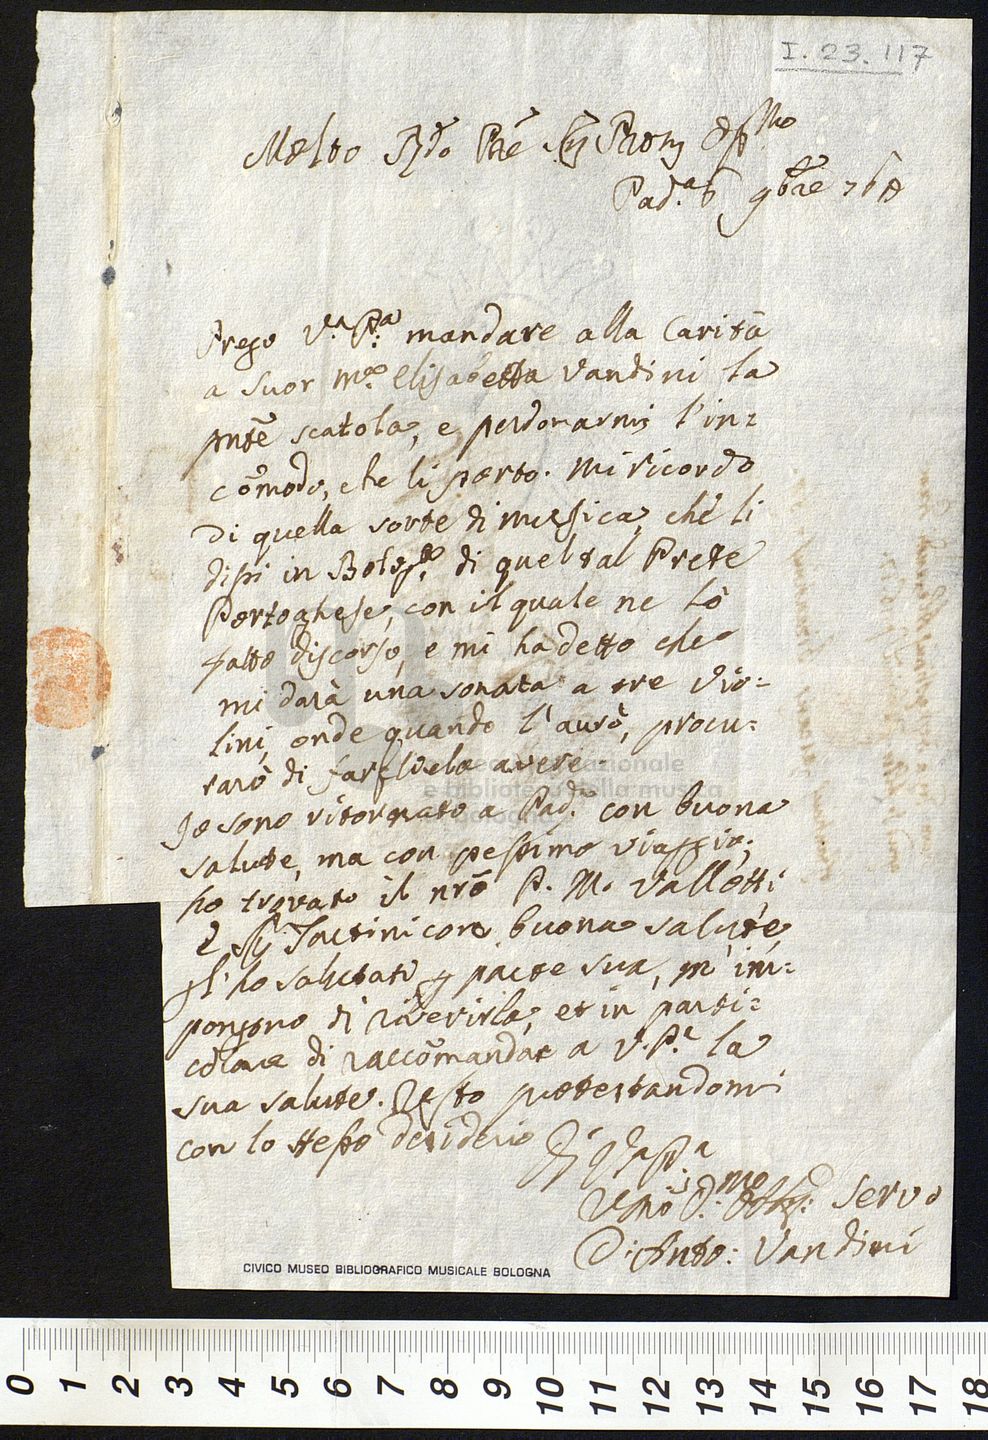 I. 23. 117
Molto Rdo Pre Sig Pron Osse.mo
Pad.a 6 9bre 760
Prego V.a P.a mandare alla Carità
a Suor M.a Elisabetta Vandini la
pnte scatola, e perdonarmi l'in=
cõmodo, che li porto. Mi ricordo
di quella sorte di musica, che li
dissi in Bolog.a di quel tal Prete
Portoghese, con il quale ne hò
fatto discorso, e mi ha detto che
mi darà una sonata a tre Vio=
lini, onde quando l'aurò, procu=
rarò di fargliela avere
Io sono ritornato a Pad.a con buona
salute, ma con pessimo viaggio;
ho trovato il nrõ P. M. Vallotti
e Sig Tartini con buona salute,
gl'ho salutati p parte sua, m'im=
pongono di riverirla, et in parti=
colare di raccõmandar a V. P.a la
sua salute. Resto protestandomi
con lo stesso desiderio
Di V.a P.a
Umo D.mo Servo
D. Anto: Vandini
CIVICO MUSEO BIBLIOGRAFICO MUSICALE BOLOGNA
museo internazionale
e biblioteca della musica
bologna
0 1 2 3 4 5 6 7 8 9 10 11 12 13 14 15 16 17 18